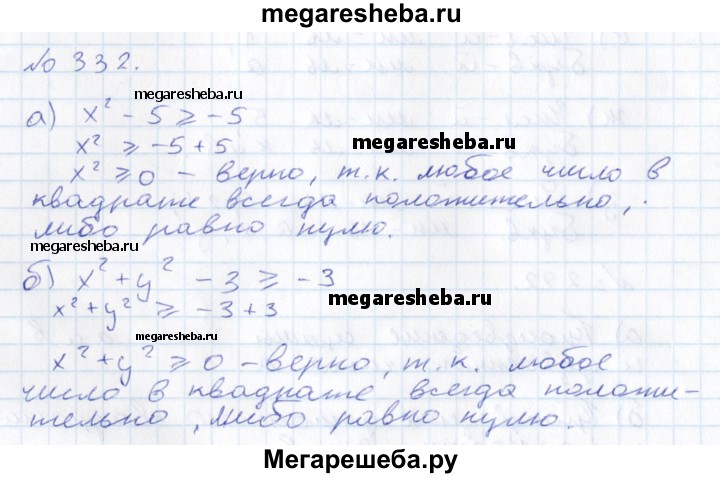 megaresheba.ru
№ 332.
megaresheba.ru
а) x² - 5 ⩾ -5
x² ⩾ -5 + 5
megaresheba.ru
x² ⩾ 0 - верно, т.к. любое число в
квадрате всегда положительно,
либо равно нулю.
megaresheba.ru
б) x² + y² - 3 ⩾ -3
x² + y² ⩾ -3 + 3
megaresheba.ru
megaresheba.ru
x² + y² ⩾ 0 - верно, т.к. любое
число в квадрате всегда положи-
тельно, либо равно нулю.
Мегарешеба.ру